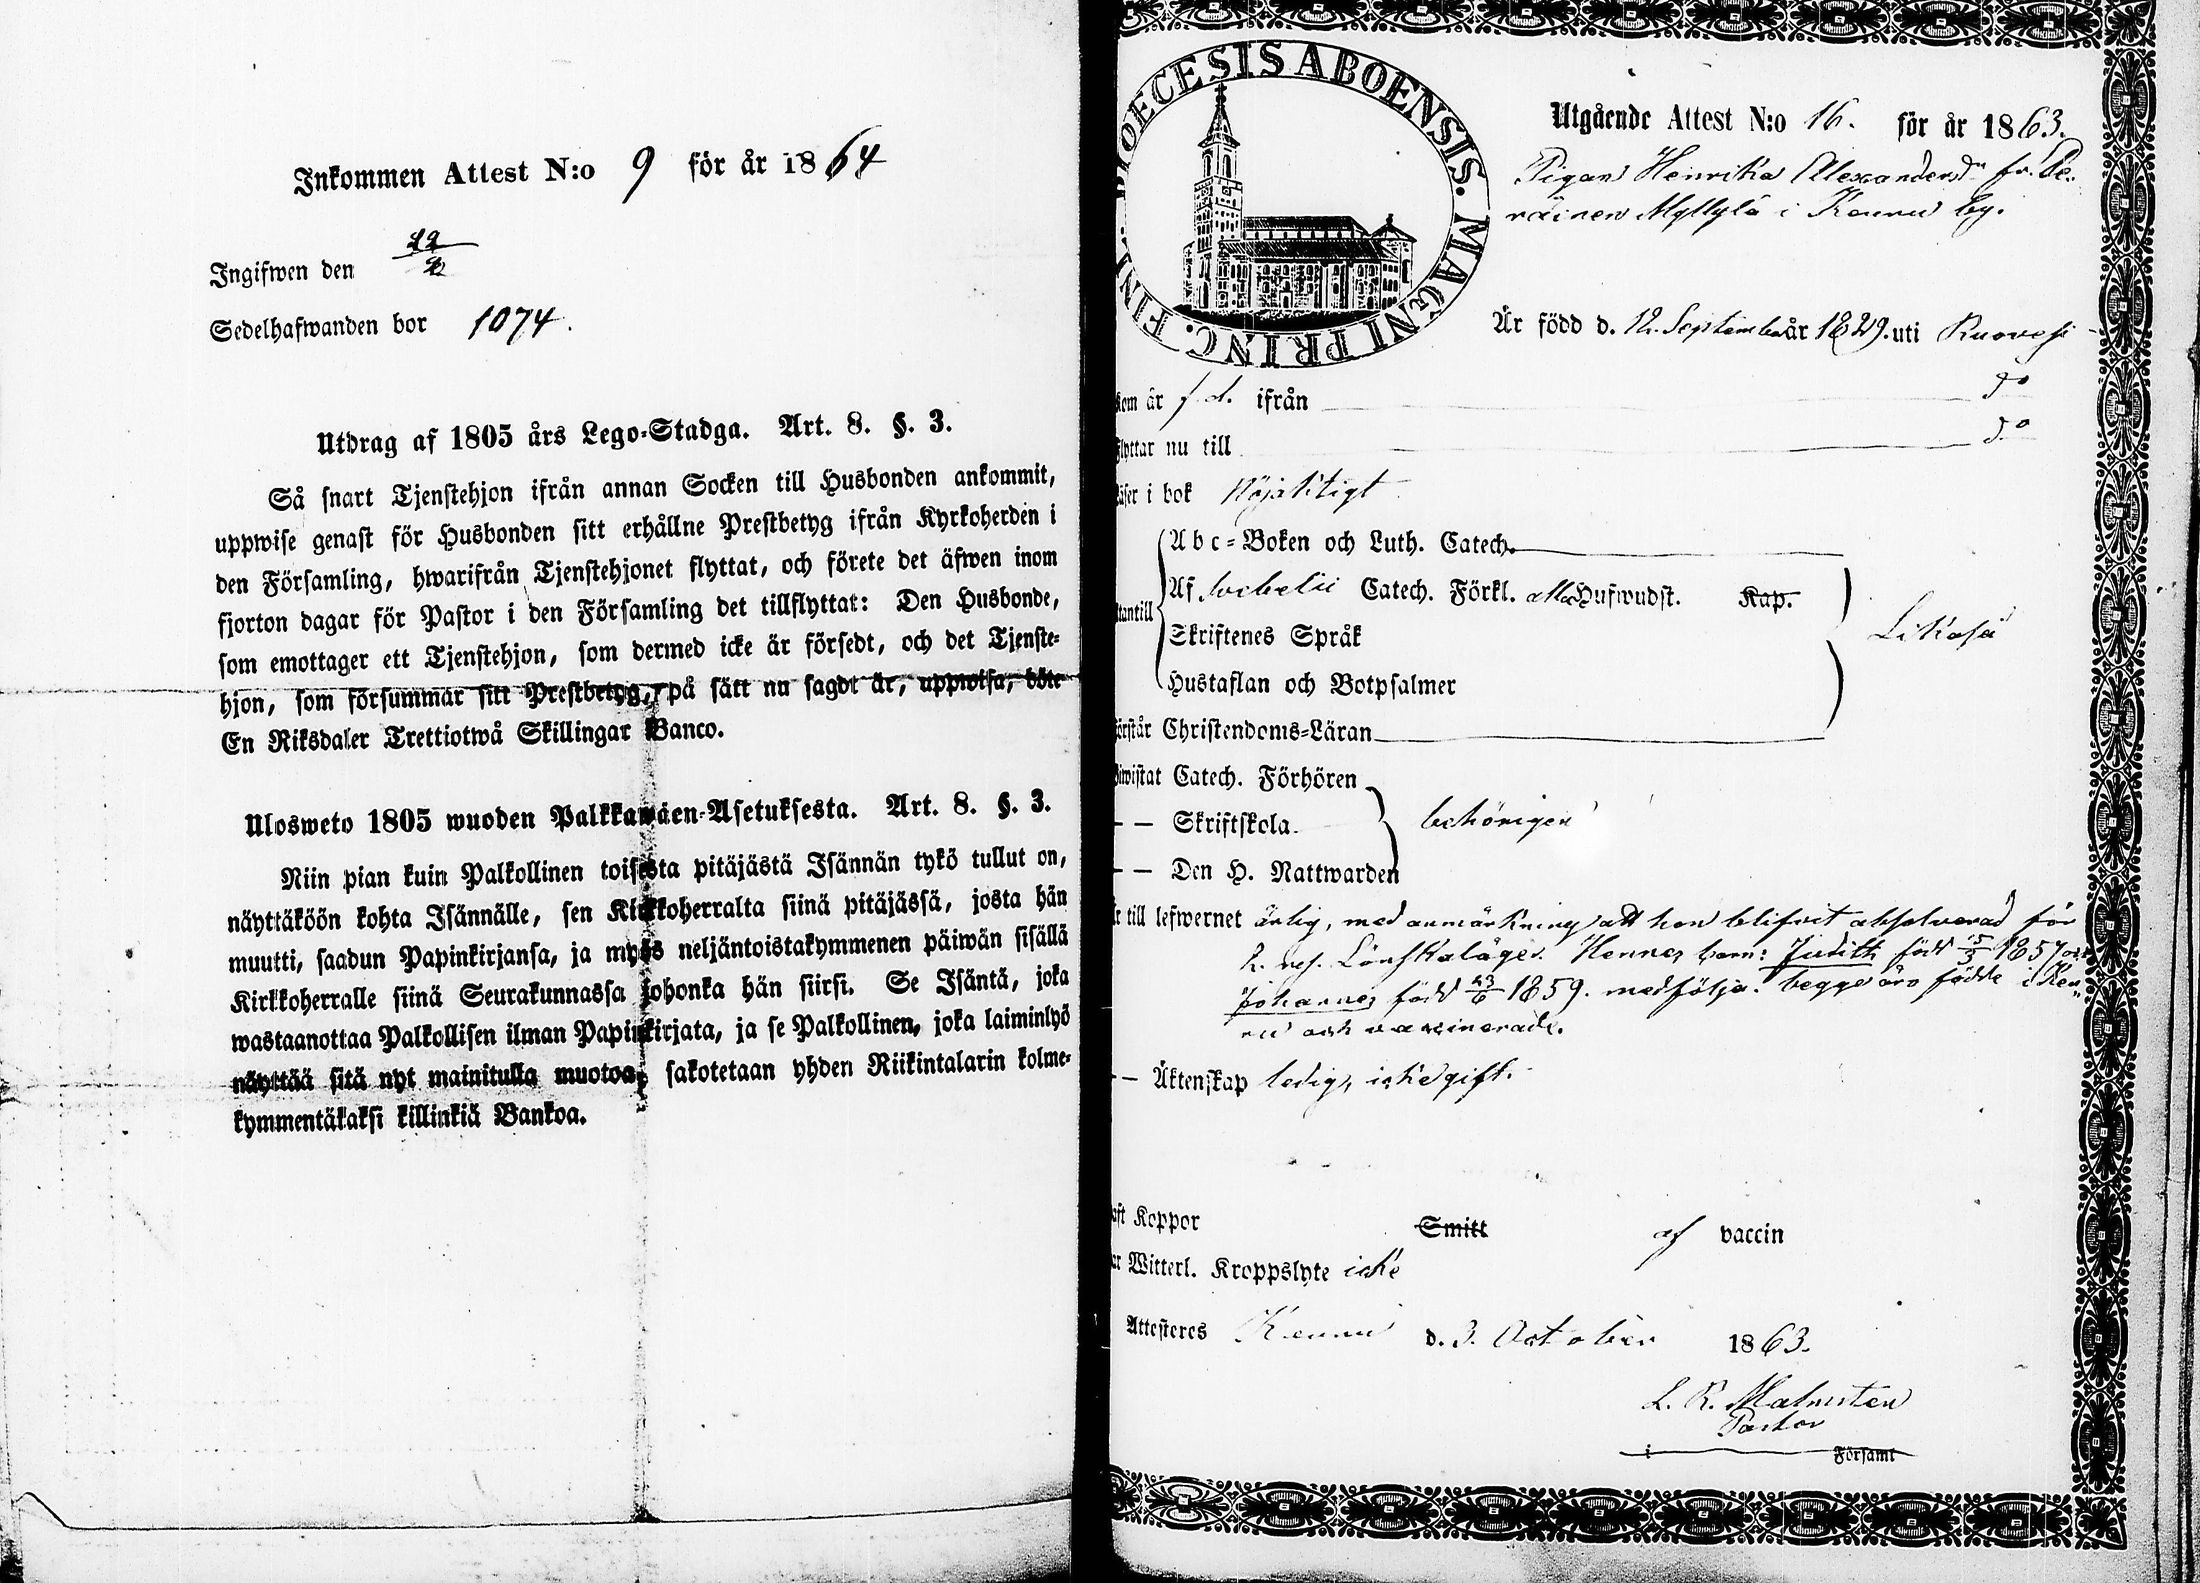 Inkommen Attest N:o 9 för år 1864
Ingifwen den
Sedelhafwanden bor 1074.
Utdrag af 1805 års Lego-Stadga. Art. 8. §. 3.
Så snart Tjenstehjon ifrån annan Socken till Husbonden ankommit,
uppwise genast för Husbonden sitt erhållne Prestbetyg ifrån Kyrkoherden i
den Församling, hwarifrån Tjenstehjonet flyttat, och förete det äfwen inom
fjorton dagar för Pastor i den Församling det tillflyttat: Den Husbonde,
som emottager ett Tjenstehjon, som dermed icke är försedt, och det Tjenste-
hjon, som försummar sitt Prestbetyg, på sätt nu sagdt är, uppwisa, böte
En Riksdaler Trettiotwå Skillingar Banco.
Ulosweto 1805 wuoden Palkkawäen-Asetuksesta. Art. 8. §. 3.
Niin pian kuin Palkollinen toisesta pitäjästä Isännän tykö tullut on,
näyttäköön kohta Isännälle, sen Kirkkoherralta siinä pitäjässä, josta hän
muutti, saadun Papinkirjansa, ja myös neljäntoistakymmenen päiwän sisällä
Kirkkoherralle siinä Seurakunnassa johonka hän siirsi. Se Isäntä, joka
wastaanottaa Palkollisen ilman Papinkirjata, ja se Palkollinen, joka laiminlyö
näyttää sitä nyt mainitulla muotoa, sakotetaan yhden Riikintalarin kolme-
kymmentäkaksi killinkiä Bankoa.
DIOECESIS ABOENSIS. MAGNI PRINC. FINL.
Utgående Attest N:o 16. för år 1863.
Pigan Henrika Alexandersdr fr. Pe-
räinen Myllylä i Keuru by.
Är född d. 12. September år 1829. uti Ruovesi
kom år f. d. ifrån do
Flyttar nu till do
Läser i bok Nöjaktigt
Abc-Boken och Luth. Catech.
Af Svebelii Catech. Förkl. alla Hufwudst. Kap.
Utantill
Skriftenes Språk
Likaså
Hustaflan och Botpsalmer
Förstår Christendoms-Läran
Biwistat Catech. Förhören
— — Skriftskola behörigen
— — Den H. Nattwarden
Är till lefwernet ärlig, med anmärkning att hon blifvit absolverad för
2. res. Lönskaläge. Hennes barn: Judith född 15/3 1857 och
Johannes född 23/6 1859. medfölja. begge äro födde i Keu-
ru och vaccinerade.
— — Äktenskap ledig, icke gift.
haft Koppor Smitt af vaccin
har Witterl. Kroppslyte icke
Attesteres Keuru d. 3. October 1863.
L. R. Malmsten
Pastor
i Församl